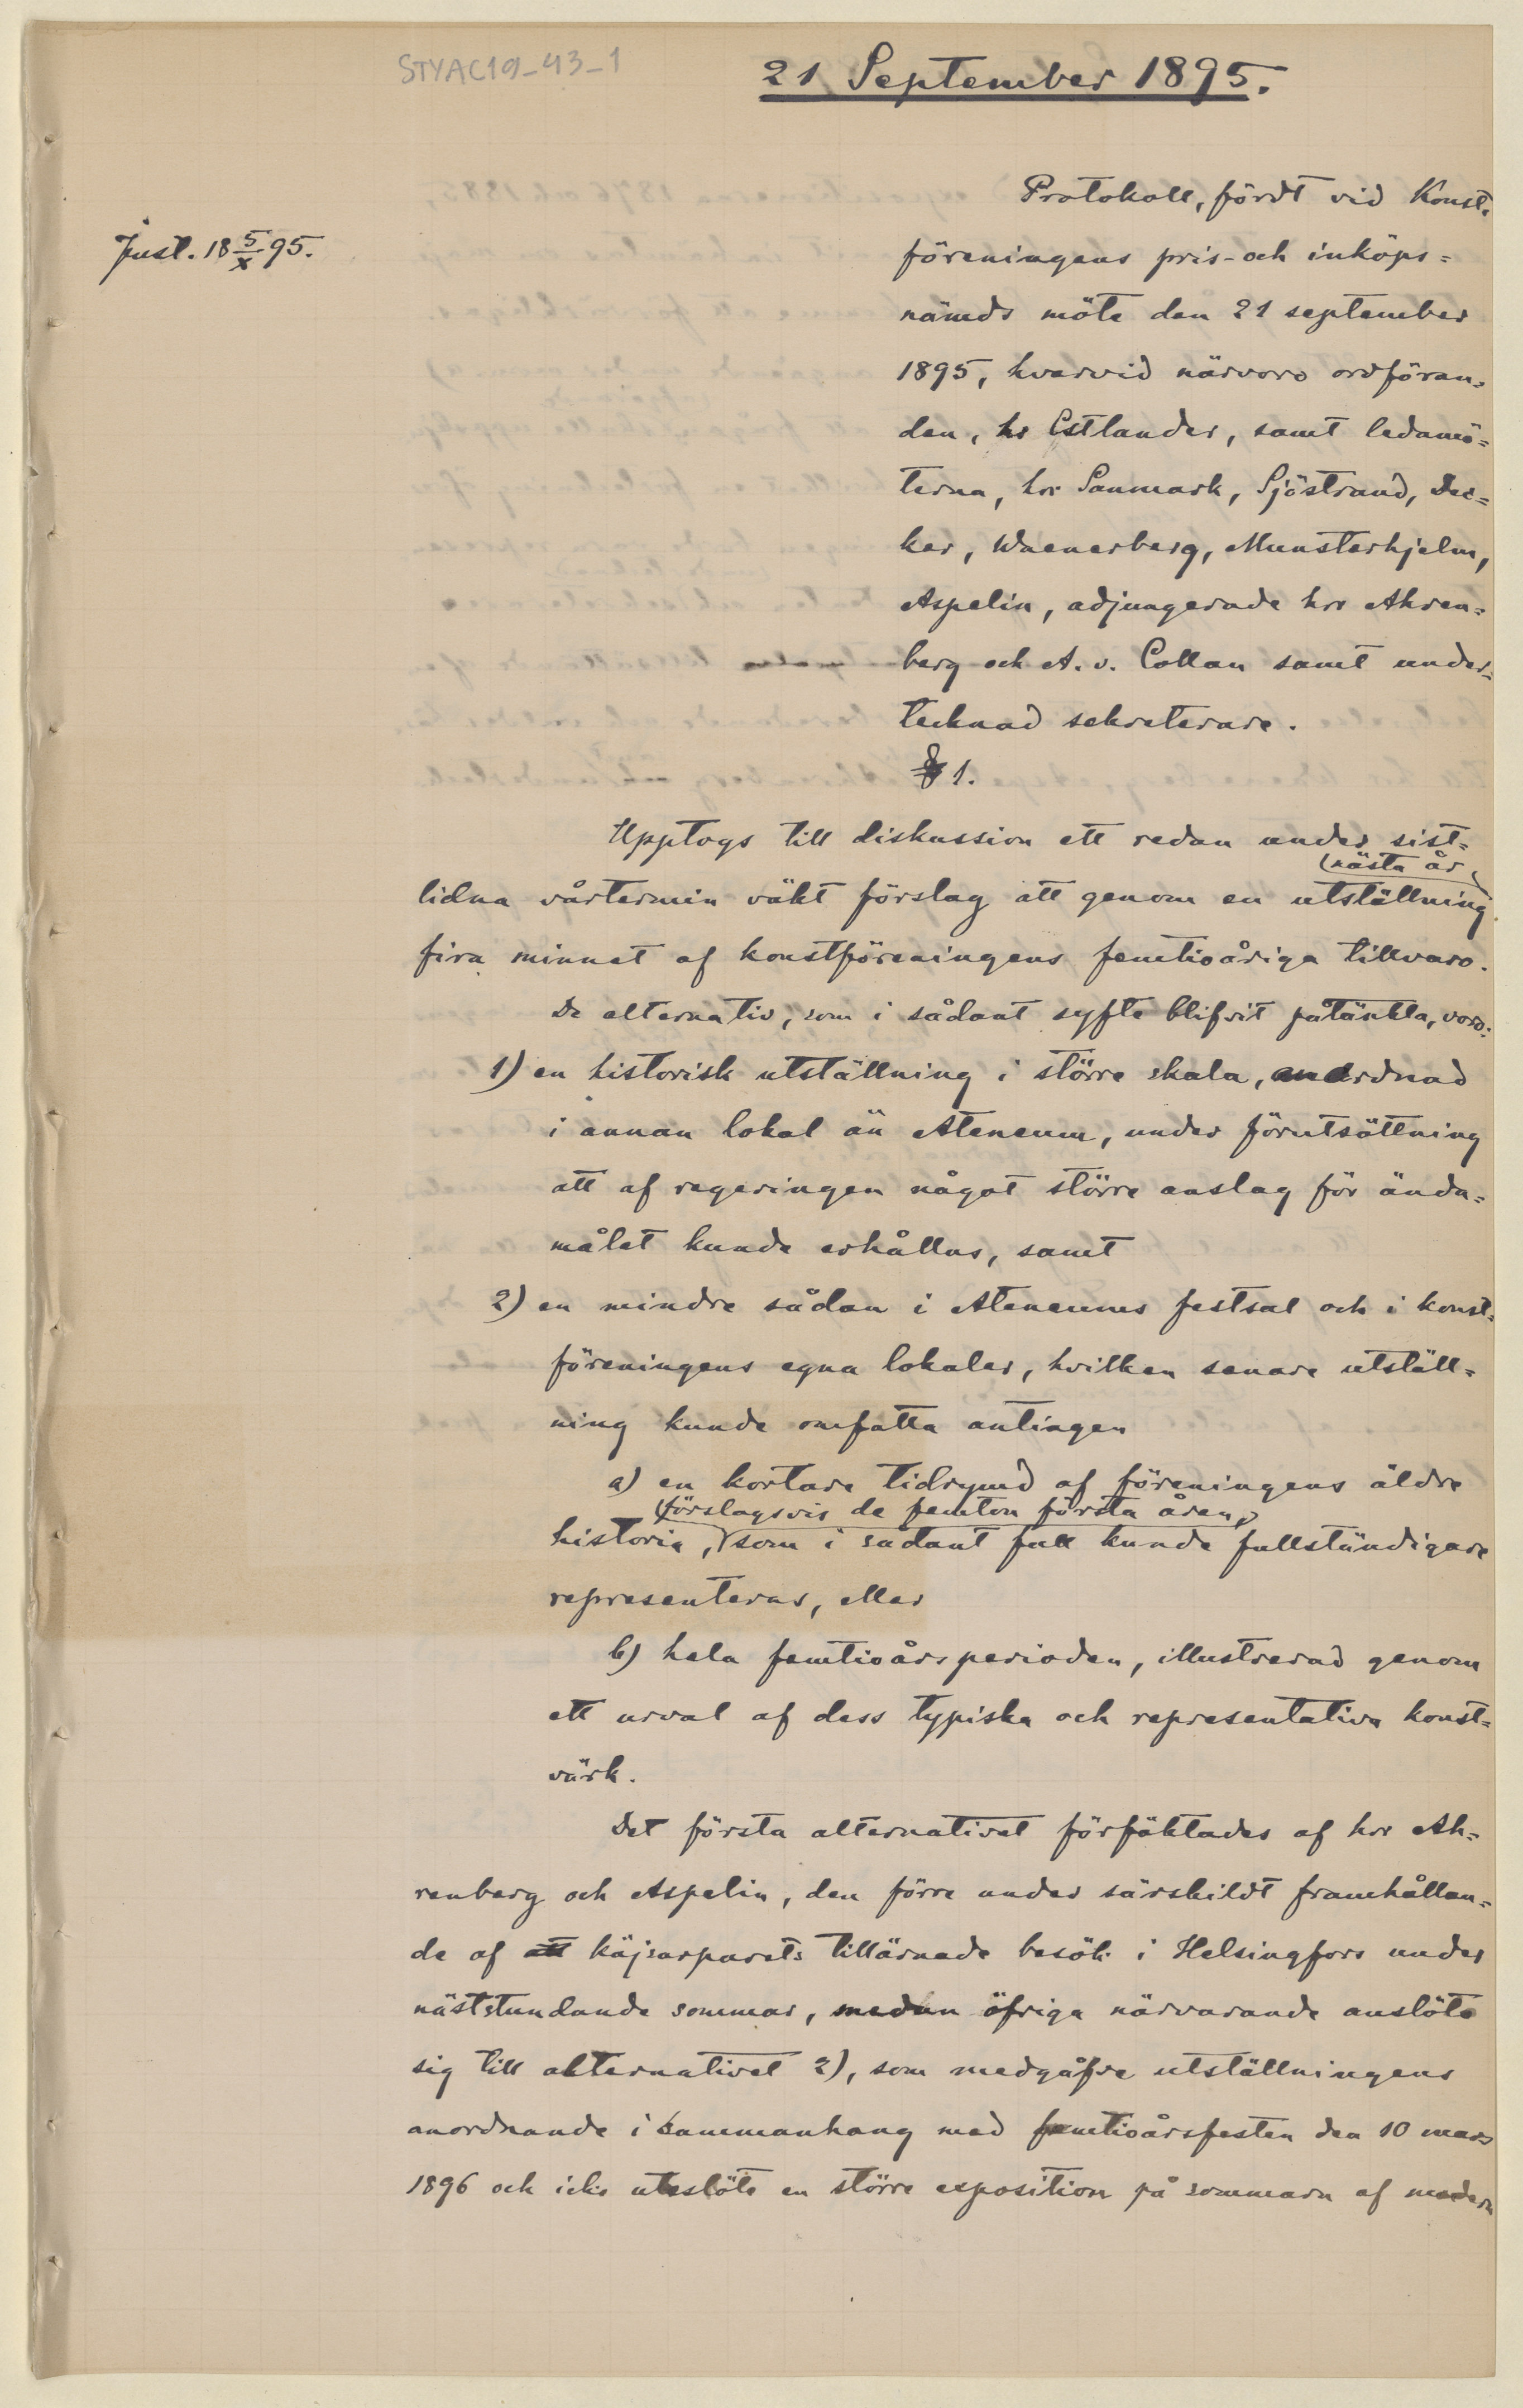 STYAC19_43_1
21 September 1895.
Just. 18 5/X 95.
Protokoll, fördt vid Konst-
föreningens pris- och inköps=
nämds möte den 21 september
1895, hvarvid närvoro ordföran=
den, hr Estlander, samt ledamö=
terna, hrr Sanmark, Sjöstrand, Dec=
ker, Waenerberg, Munsterhjelm,
Aspelin, adjungerade hrr Ahren=
berg och A. v. Collan samt under=
tecknad sekreterare.
§ 1.
Upptogs till diskussion ett redan under sist=
nästa år
lidna vårtermin väkt förslag att genom en utställning
fira minnet af konstföreningens femtioåriga tillvaro.
De alternativ, som i sådant syfte blifvit påtänkta, voro:
1) en historisk utställning i större skala, anordnad
i annan lokal än Ateneum, under förutsättning
att af regeringen något större anslag för ända=
målet kunde erhållas, samt
2) en mindre sådan i Ateneums festsal och i konst=
föreningens egna lokaler, hvilken senare utställ=
ning kunde omfatta antingen
a) en kortare tidrymd af föreningens äldre
förslagsvis de femton första åren,
historia, som i sådant fall kunde fullständigare
representeras, eller
b) hela femtioårsperioden, illustrerad genom
ett urval af dess typiska och representativa konst=
värk.
Det första alternativet förfäktades af hrr Ah=
renberg och Aspelin, den förre under särskildt framhållan=
de af att käjsarparets tillärnade besök i Helsingfors under
näststundande sommar, medan öfriga närvarande anslöto
sig till alternativet 2), som medgåfve utställningens
anordnande i sammanhang med femtioårsfesten den 10 mars
1896 och icke uteslöte en större exposition på sommarn af modern